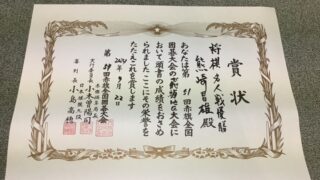 賞状
将棋名人戦優勝
熊崎
雄殿
あなたは第51回赤旗全国
囲碁大会の
地区大会に
おいて頭書の成績をおさめ
られましたここにその栄誉を
たたえこれを賞します
9月22日
第
回赤旗囲碁大会
実行委員長 小木曽陽司
審判長 小島高穂